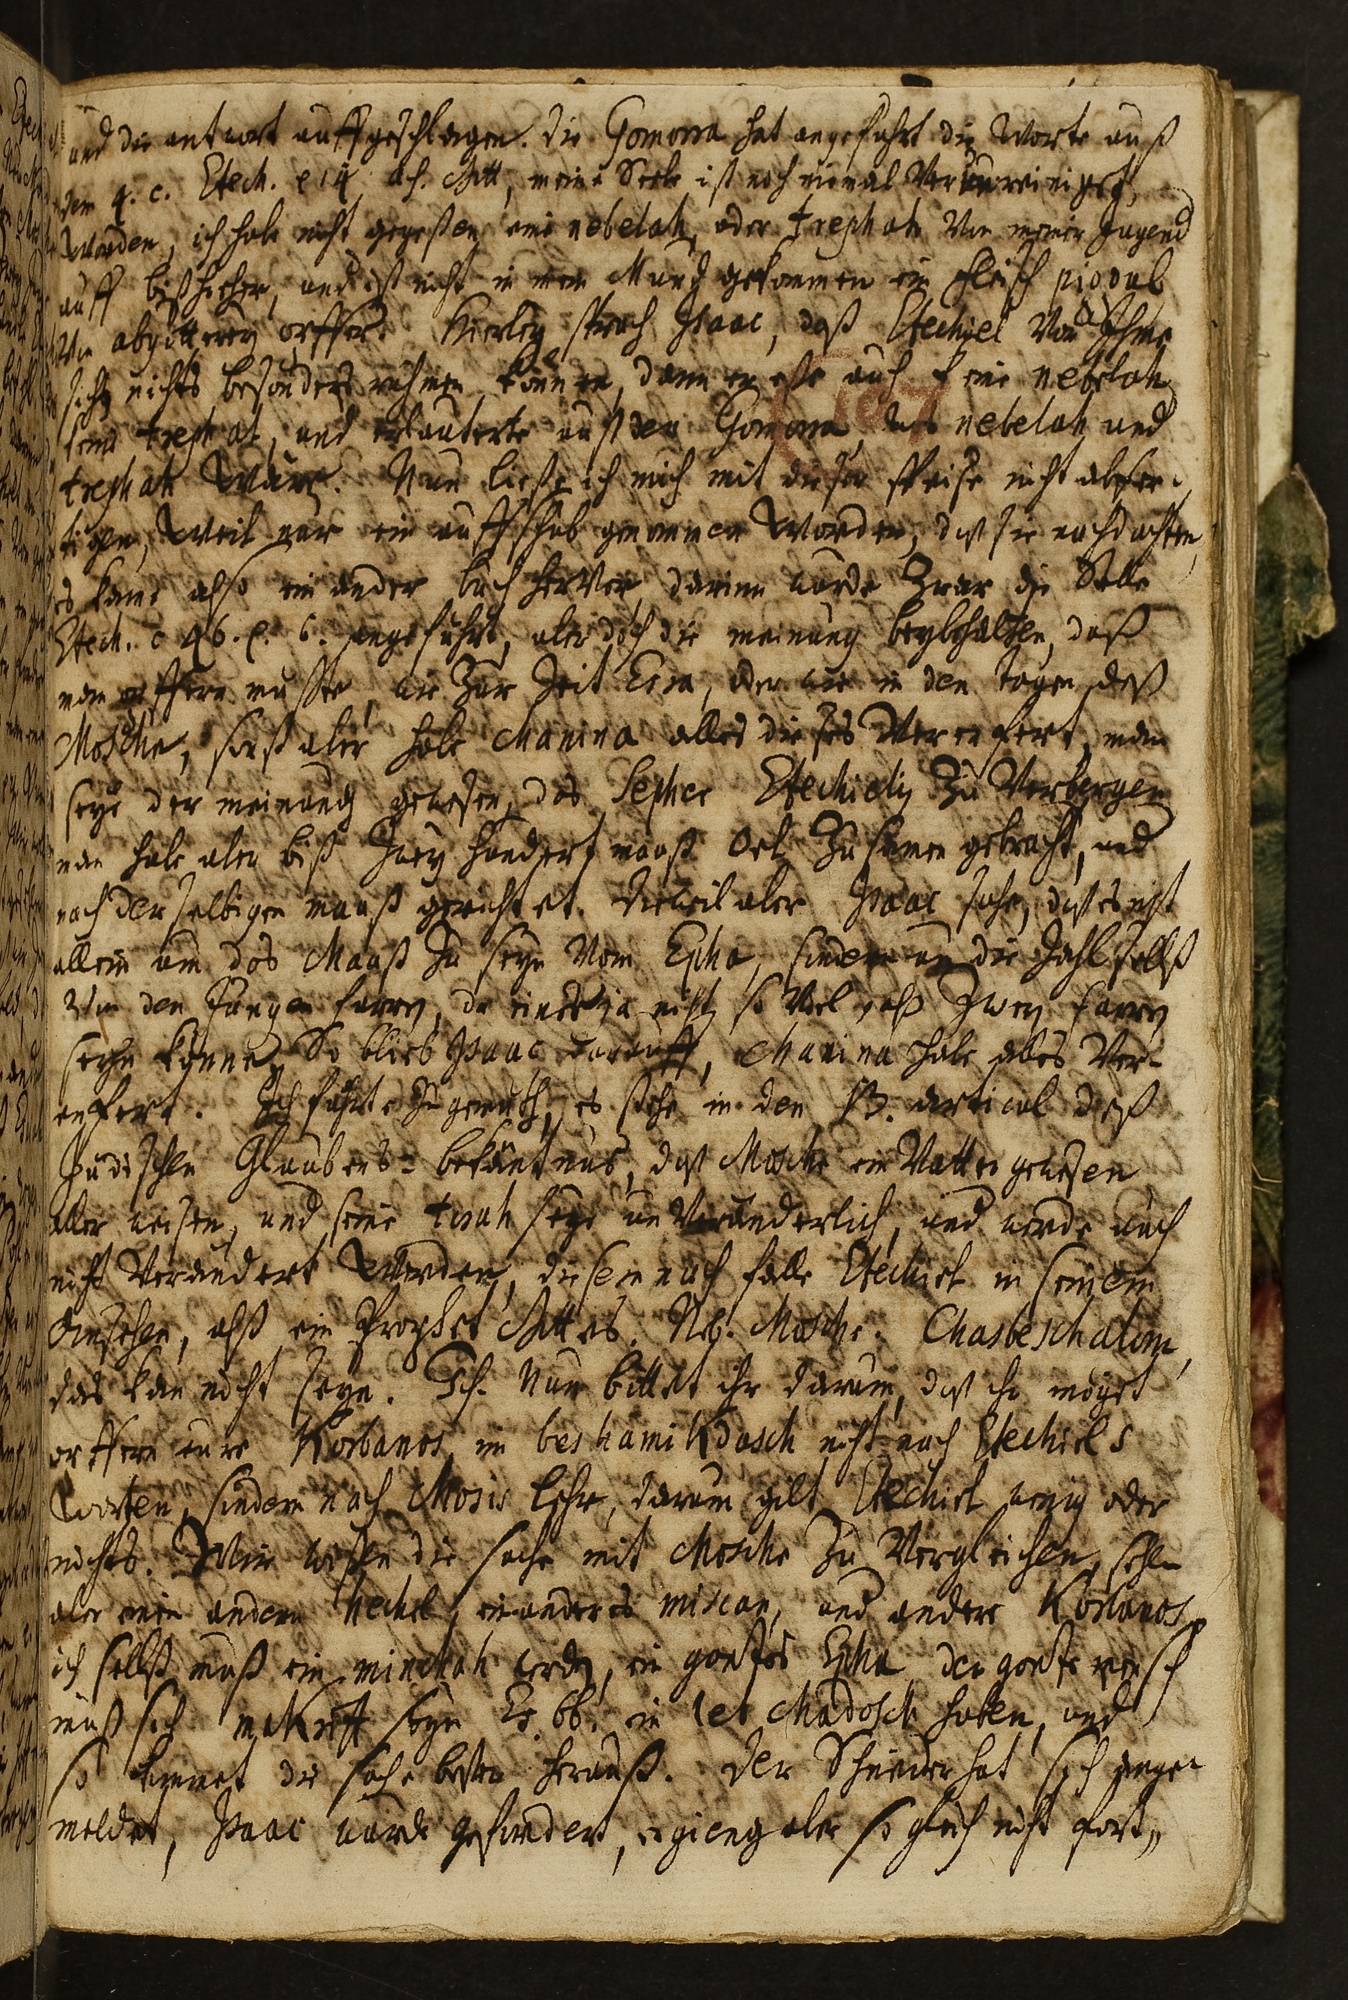 und die antwort auffgeschlagen. die Gomorra hat angeführt die Worte auß
dem 4. c. Etech. e 14 ach Gott, meine Seele ist noch niemal Verunreiniget
worden, ich habe nicht gegeßen eine nebelah, oder trephah Von meiner Jugend
auff bißhieher, und ist nicht in mein Mund gekommen ein fleisch piggul
Von abgötterey opffer. Hierbey sprach Isaac, daß Etechiel Von Ihme
sich nichts besonders rühmen könne, dann er eße auch keine nebelah
keine trephah, und erläuterte auß der Gomorra was nebelah und
trephah wäre. Nun ließe ich mich mit dieser speise nicht abfer-
tigen, Weil nur ein auffschub genommen Worden, daß sie nachdachten,
es kame also ein ander buch herVor, darinn wurde Zwar die Stelle
Etech. c 46. e. 6. angeführt, aber doch die meinung beybehalten, daß
man opffern müßte, wie Zur Zeit Esra, oder wie in den tagen deß
Mosche, sonst aber habe Chanina alles dieses Verenfert, man
seye der meinung gewesen, das Sepher Etechielis Zu Verbergen
man habe aber biß Zwey hundert maaß Oel Zusamen gebracht, und
nach derselbigen maaß gerichtet. dieweil aber Isaac sahe, daß es nicht
allein um das Maaß Zu seyn Vom Epha, sondern um die Zahl selbst
Von den Jungen farren, da einer ja nicht so Viel alß Zwey farren
seyn könne, So blieb Isaac darauff, Chanina habe alles Ver-
enfert. Ich führte Zu gemüth, es stehe in den 13. articul deß
Jüdischen Glaubens-bekäntnus, daß Mosche ein Vatter gewesen
aller weisen, und seine torah seye unVeränderlich, und werde auch
nicht Verändert Werden, diesem nach falle Etechiel in seinem
Ansehen, alß ein Prophet Gottes. Rb. Mosche. Chasbeschalom,
das kan nicht seyn. Ich. Nun bittet ihr darum, daß ihr möget
opffern eure Korbanos im beshamikdasch nicht nach Etechiels
Worten, sondern nach Mosis Lehr, darum gilt Etechiel wenig oder
nichts. Wir wißen die sache mit Mosche Zu Vergleichen, sehen
aber einen andern hechel, ein anderes miscan, und andere Korbanos
ich selbst muß ein minchah werden, ein gantzes Epha der gantze mensch
muß sich makriff seyn Er bb. ein leb Chadosch haben, und
so kommet die sache beßer herauß. der Schneider hat sich ange-
meldet, Isaac wurde gefordert, er gieng aber so gleich nicht fort,